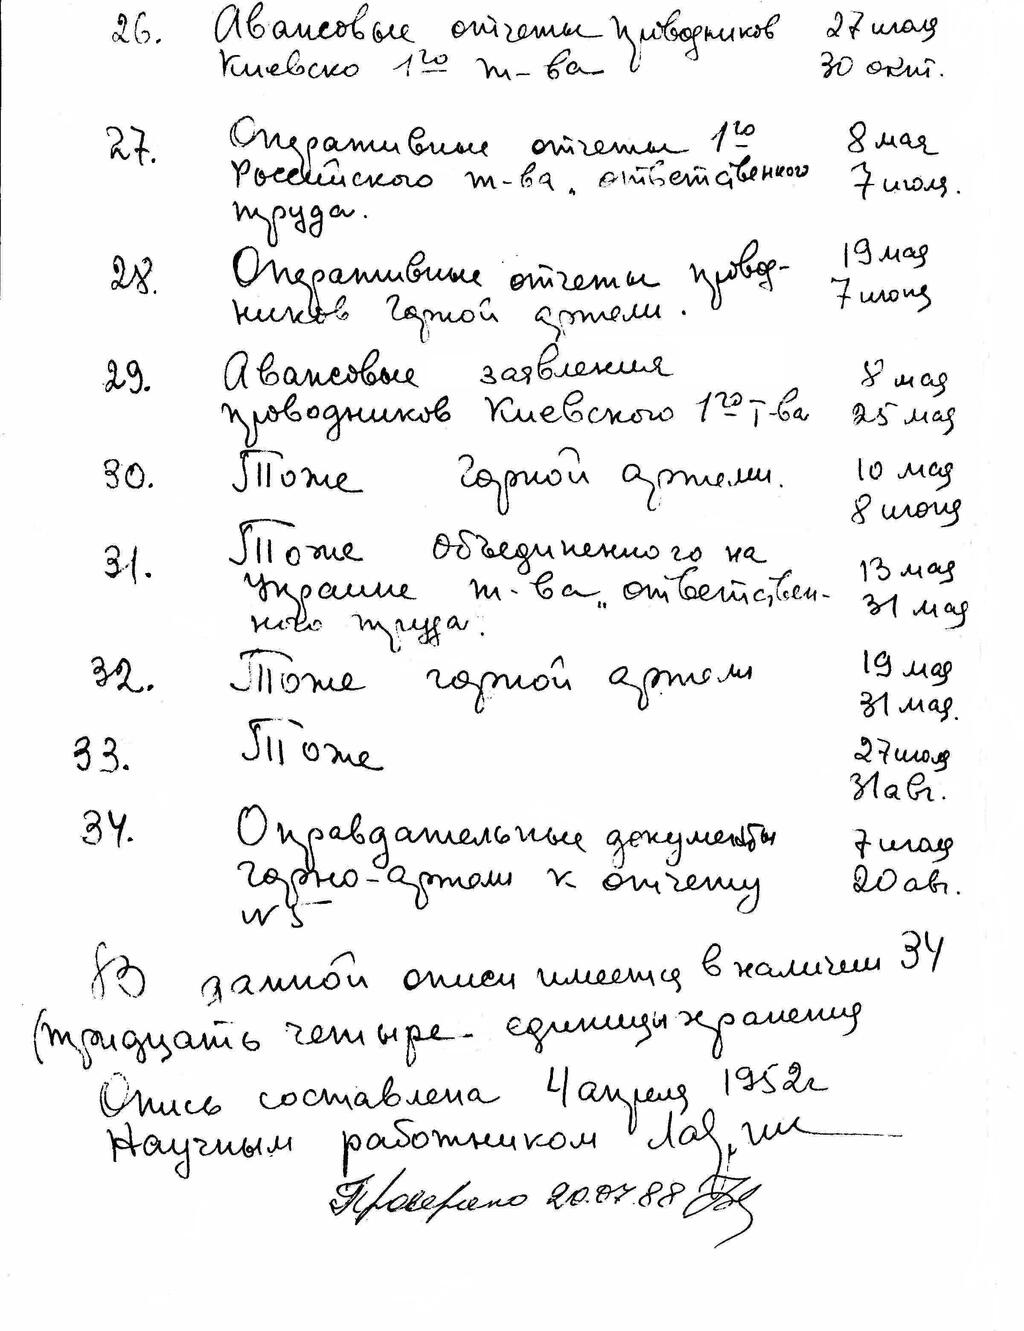 26. Авансовые отчеты проводников 27 июля
Киевско 1го т-ва 30 окт.
27. Оперативные отчеты 1го 8 мая
Российского т-ва „ ответственного 7 июля.
труда.
28. Оперативные отчеты провод- 19 мая
ников Горной артели. 7 июня
29. Авансовые заявления 8 мая
проводников Киевского 1го т-ва 25 мая
30. Тоже Горной артели. 10 мая
8 июня
31. Тоже Объединенного на 13 мая
Украине т-ва „ ответствен- 31 мая
ного труда.
32. Тоже горной артели 19 мая
31 мая.
33. Тоже 27 июля
31 авг.
34. Оправдательные документы 7 июля
Горно-артели к отчету 20 авг.
N 5
В данной описи имеется в наличии 34
(тридцать четыре единицы хранения
Опись составлена 4 апреля 1952г
Научным работником
Проверено 20.07.88